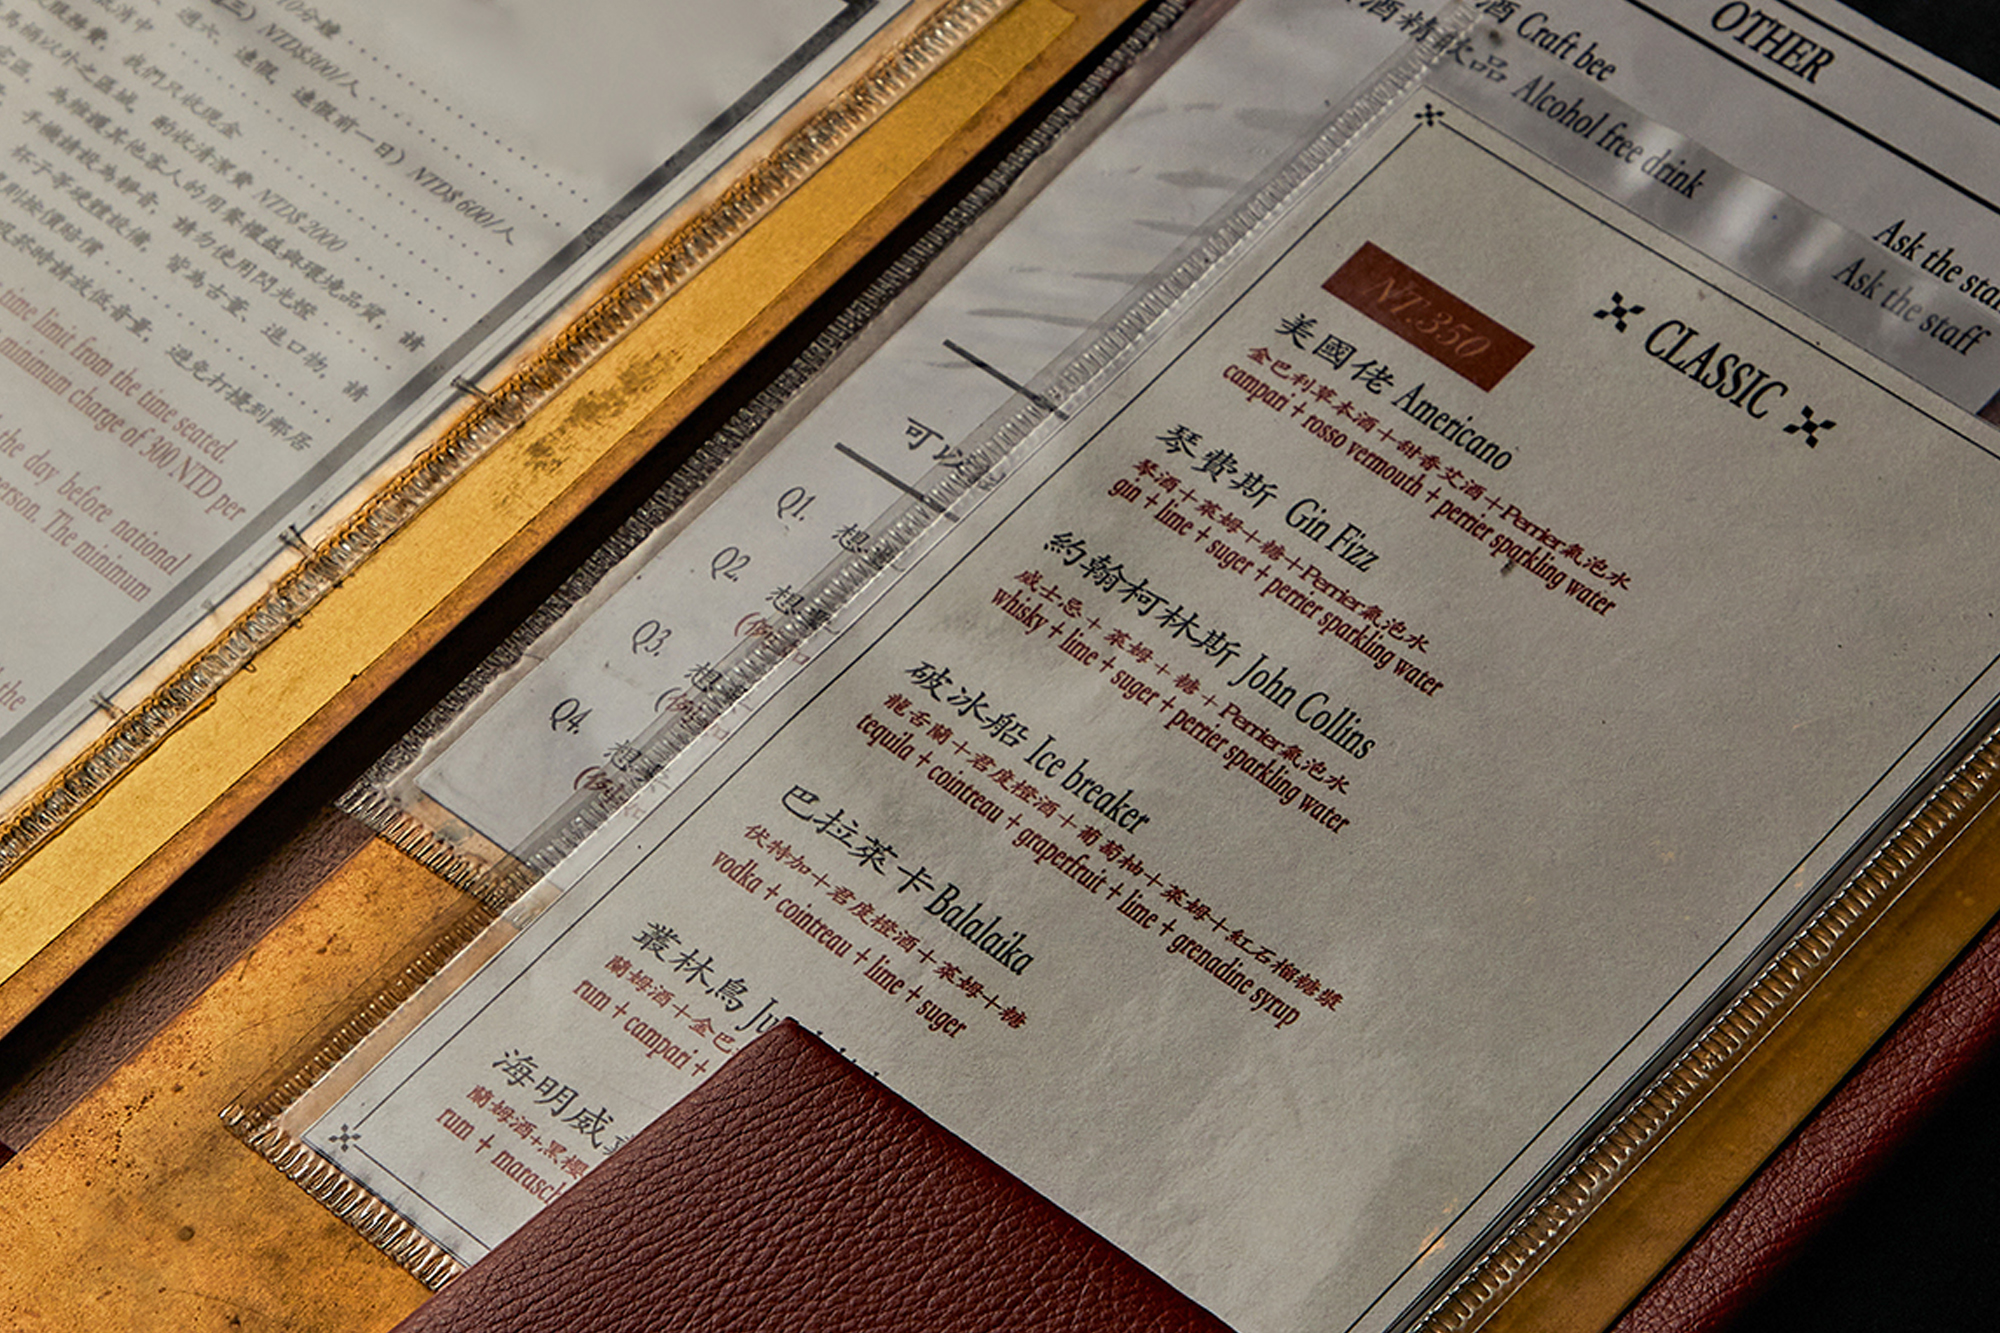 10分鐘
三) NTD$300/人
週六、連假、連假前一日) NTD$600/人
服務費，我們只收現金
以外之區域，酌收清潔費 NTD$ 2000
為維護其他客人的用餐權益與環境品質，請
手機請設為靜音，請勿使用閃光燈
杯子等硬體設備，皆為古董、進口物，請
則按價賠償
時請放低音量，避免打擾到鄰居
time limit from the time seated.
minimum charge of 300 NTD per
the day before national
person. The minimum
the
可以
Q1. 想
Q2. 想
Q3. 想
Q4. 想
OTHER
酒 Craft bee
Ask the sta
酒精飲品 Alcohol free drink
Ask the staff
CLASSIC
NT.350
美國佬 Americano
金巴利草本酒+甜香艾酒+Perrier氣泡水
campari + rosso vermouth + perrier sparkling water
琴費斯 Gin Fizz
琴酒+萊姆+糖+Perrier氣泡水
gin + lime + suger + perrier sparkling water
約翰柯林斯 John Collins
威士忌+萊姆+糖+Perrier氣泡水
whisky + lime + suger + perrier sparkling water
破冰船 Ice breaker
龍舌蘭+君度橙酒+葡萄柚+萊姆+紅石榴糖漿
tequila + cointreau + graperfruit + lime + grenadine syrup
巴拉萊卡 Balalaika
伏特加+君度橙酒+萊姆+糖
vodka + cointreau + lime + suger
叢林鳥 Ju
蘭姆酒+金巴
rum + campari +
海明威
蘭姆酒+黑櫻
rum + marasch